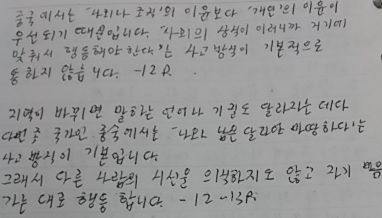 중국에서는 '사회나 조직'의 이음보다 '개인'의 이음이
우선되기 때문입니다. "사회의 상식이 이러니까 거기에
맞춰서 행동해야 한다"는 사고방식이 기본적으로
통하지 않습니다. -12P.
지역이 바뀌면 말하는 언어나 기질도 달라지는 데다
다민족 국가인 중국에서는 '나와 남은 달라야 마땅하다'는
사고 방식이 기본입니다.
그래서 다른 사람의 시선을 의식하지도 않고 자기 마음
가는 대로 행동 합니다. -12-13P.